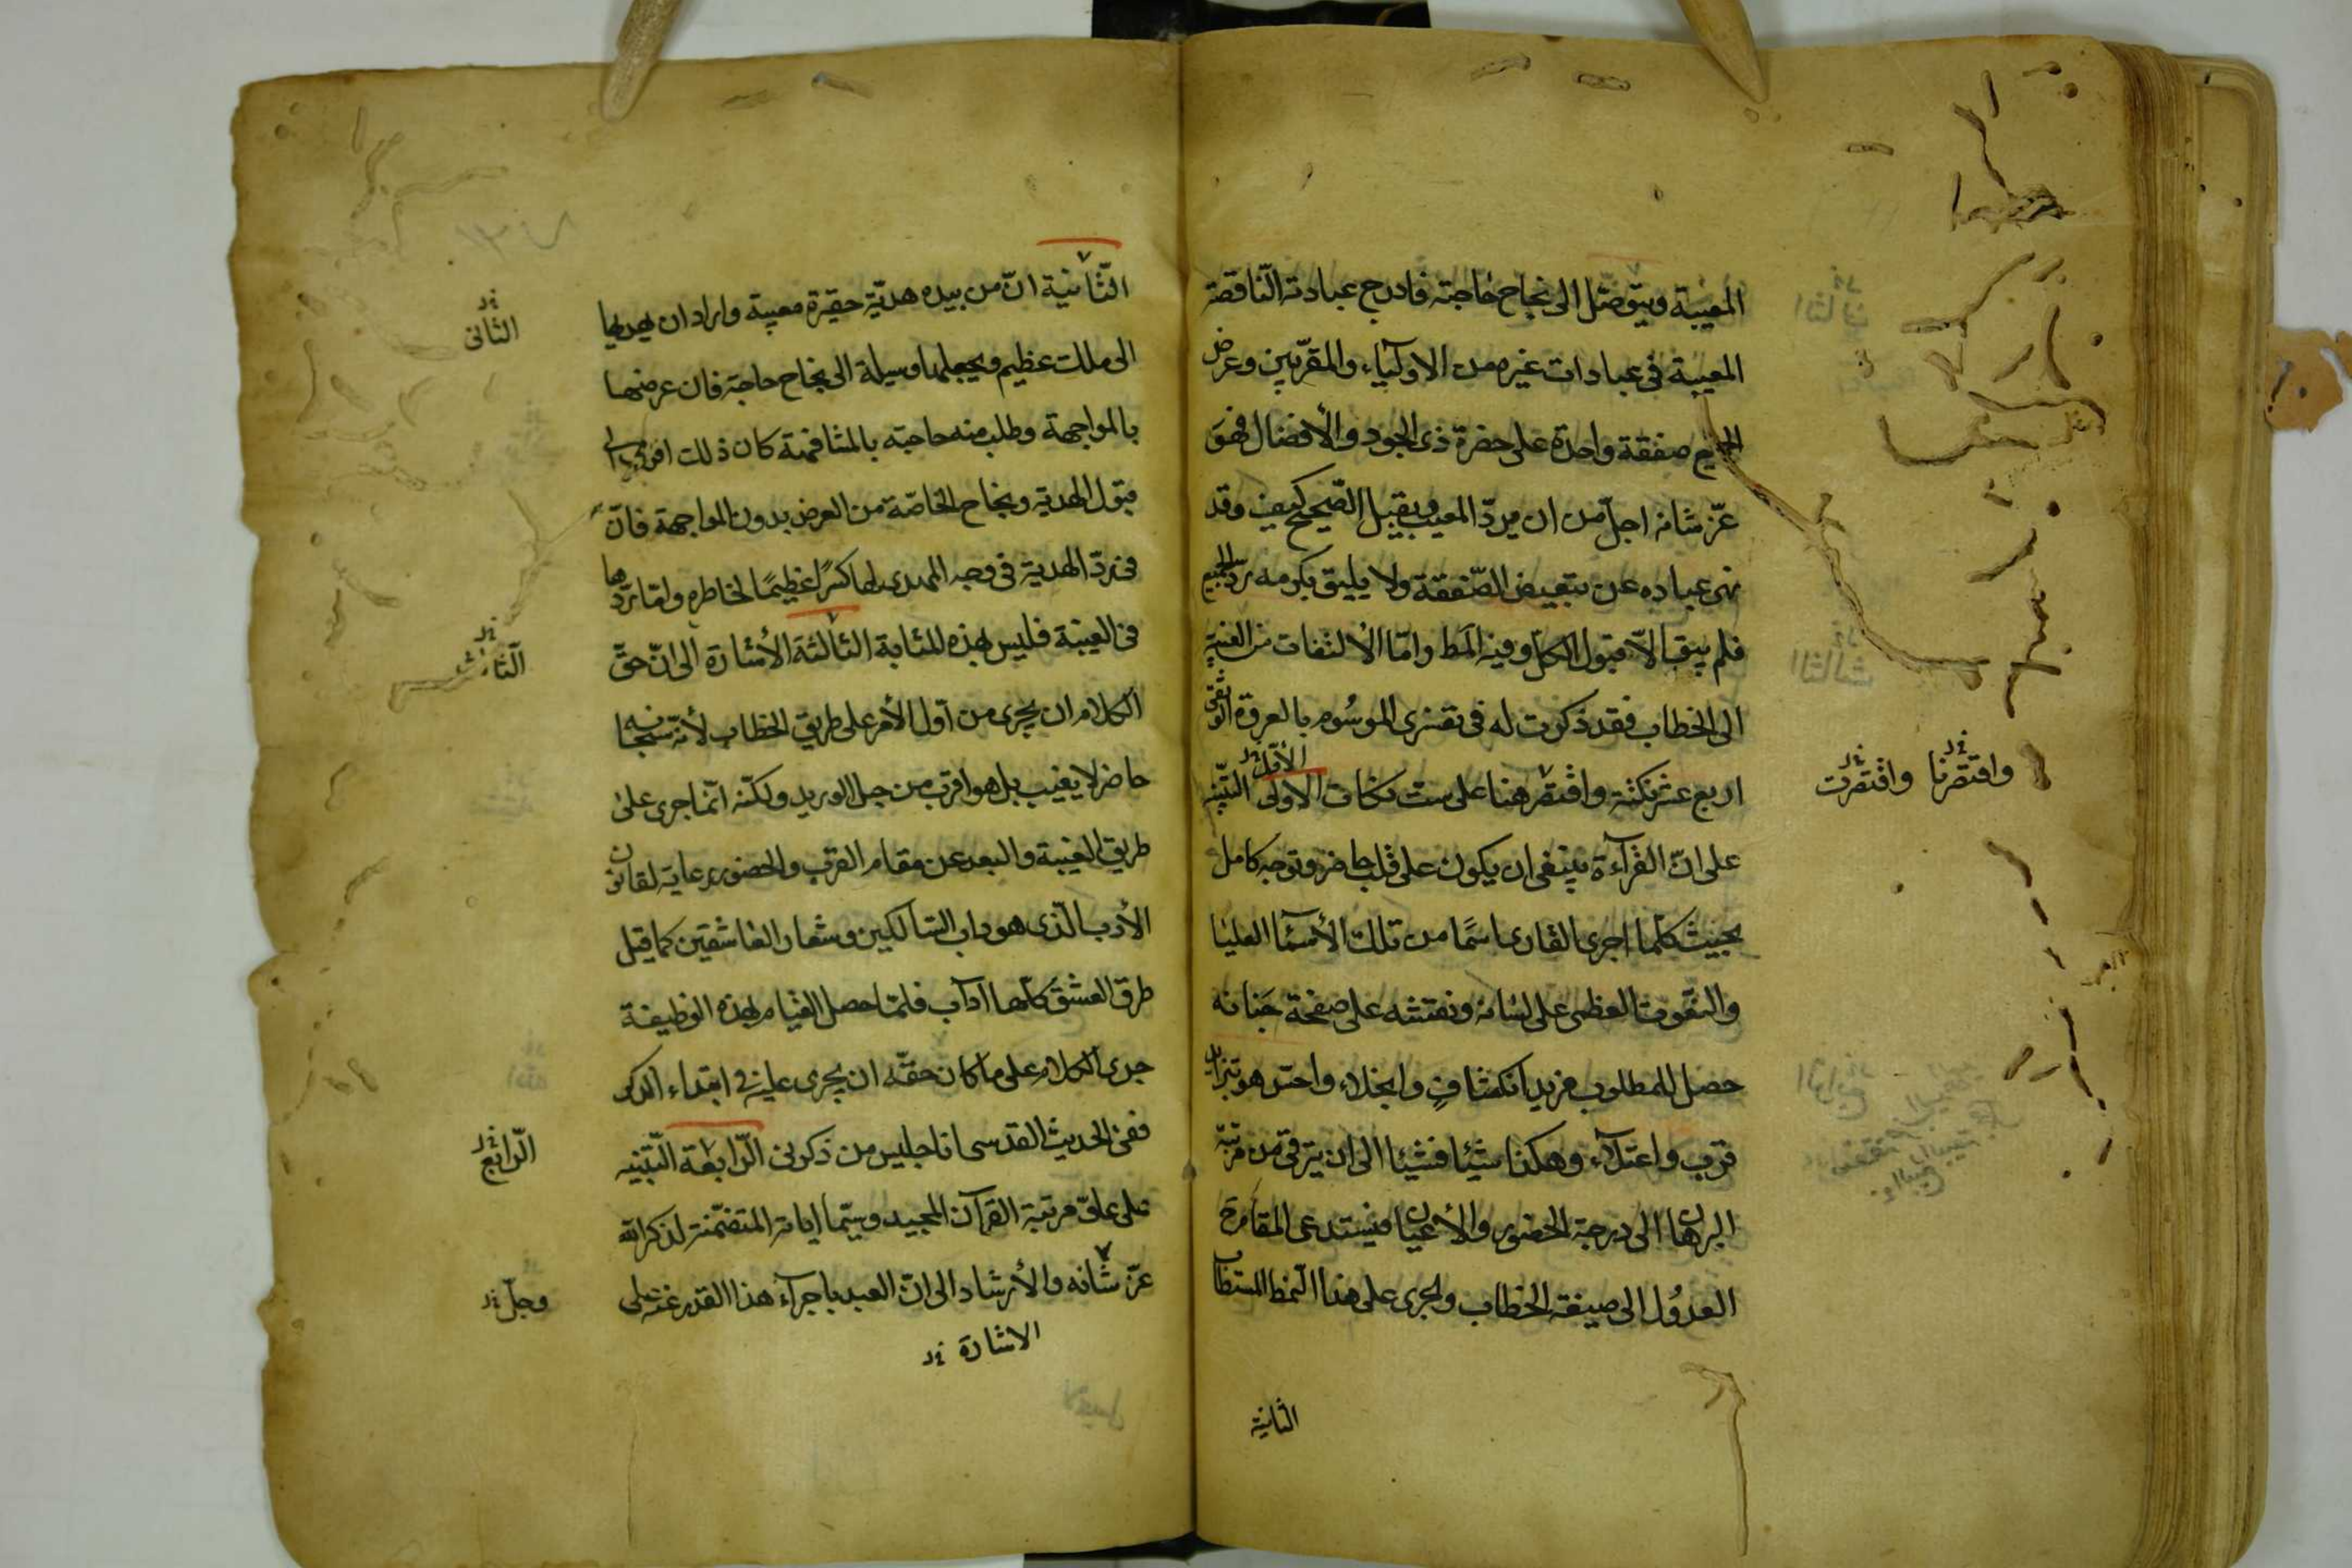 المعيبة ويتوصّل الى نجاح حاجته فادرج عبادته النّاقصة
المعيبة فى عبادات غيره من الاوليآء والمقرّبين وعرض
الجميع صفقة واحدة على حضرة ذى الجود والأفضال فهو
عزّ شانه اجلّ من ان يردّ المعيب ويقبل الصّحيح كيف وقد
نهى عباده عن تبعيض الصّفقة ولا يليق بكرمه ردّ الجميع
فلم يبق الاّ قبول الكلّ وفيه المط وامّا الألتفات من الغيبة
الى الخطاب فقد ذكرت له فى تفسيرى الموسُوم بالعروة الوثقى
اربع عشر نكتة واقتصر هنا على ست نكات الاولى التّنبيه
الأوّل
واقتصرنا واقتصرت
على انّ القرآءة ينبغى ان يكون على قلب حاضر وتوجه كامل
بحيث كلّما اجرى القارى اسمًا من تلك الأسمآ العليا
والنّعوت العظمى على لسانه ونقشه على صفحة جَنانه
حصل للمطلوب مزيد انكشافٍ وانجلاء واحسّ هو بتزايد
قرب واعتلآء وهكذا شيئا فشيئا الى ان يترقى من مرتبة
البرهان الى درجة الحضور والأعيان فيستدعى المقام ح
العدوُل الى صيغة الخطاب والجرى على هذا النمط المستطاب
الثانية
الثّانية انّ من بيده هديّة حقيرة معيبة واراد ان يهديها
الثّانى
الى ملك عظيم ويجعلها وسيلة الى نجاح حاجته فان عرضها
بالمواجهة وطلب منه حاجته بالمشافهة كان ذلك اقرب الى
قبول الهديّة ونجاح الحاجة من العرض بدون المواجهة فانّ
فى ردّ الهديّة فى وجه المهدى لها كسرًا عظيمًا لخاطره وامّا ردّها
فى الغيبة فليس بهذه المثابة الثالثة الأشارة الى انّ حقّ
الثّالث
الكلام ان يجرى من اوّل الأمر على طريق الخطاب لأنّه سبحانه
حاضر لا يغيب بل هو اقرب من حبل الوريد ولكنّه انّما جرى على
طريق الغيبة والبعد عن مقام القرب والحضور رعاية لقانون
الأدب الّذى هو داب السّالكين وشعار العاشقين كما قيل
طرق العشق كلّها آداب فلمّا حصل القيام بهذه الوظيفة
جرى الكلام على ما كان حقّه ان يجرى عليه فى ابتداء الذكر
ففى الحديث القدسى انا جليس من ذكرنى الرّابعة التّنبيه
الرّابع
على علوّ مرتبة القرآن المجيد وسيّما اياته المتضمّنة لذكر الله
عزّ شانه والأرشاد الى انّ العبد باجرآء هذا القدر منه على
وجلّ
الاشارة